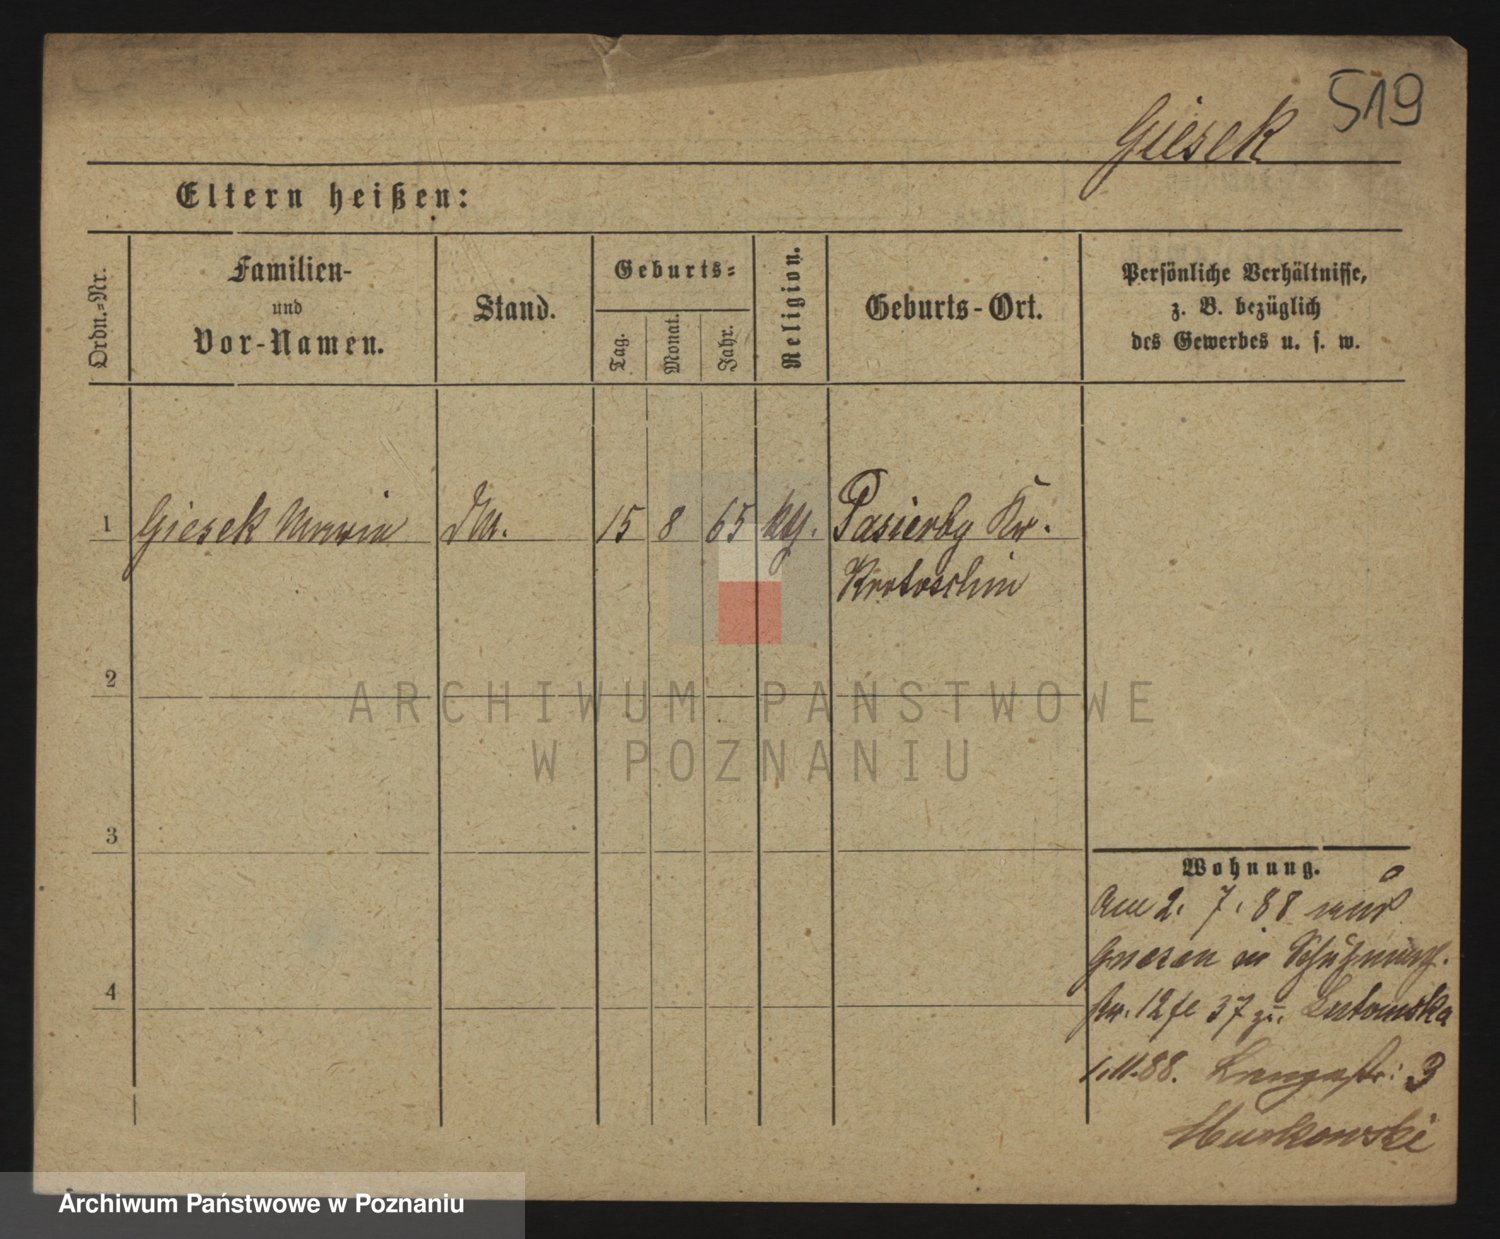 519
Giesek
Eltern heißen:
Ordn.-Nr.
Familien-
und
Vor-Namen.
Stand.
Geburts-
Tag.
Monat.
Jahr.
Religion.
Geburts-Ort.
Persönliche Verhältnisse,
z. B. bezüglich
des Gewerbes u. s. w.
1 Giesek Maria 15 8 65 kth. Pasierby Kr.
Krotoschin
2
3
4
Wohnung.
Am 2. 7. 88 aus
Gnesen in
12 37 zu. Lutomska
1.11.88. Langestr: 3
ARCHIWUM PAŃSTWOWE
W POZNANIU
Archiwum Państwowe w Poznaniu